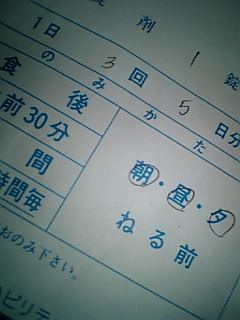 錠 剤 1 錠
1日 3 回 5 日分
のみかた
食 後
前30分
間
時間毎
朝・昼・夕
ねる前
おのみ下さい。
ハビリテ